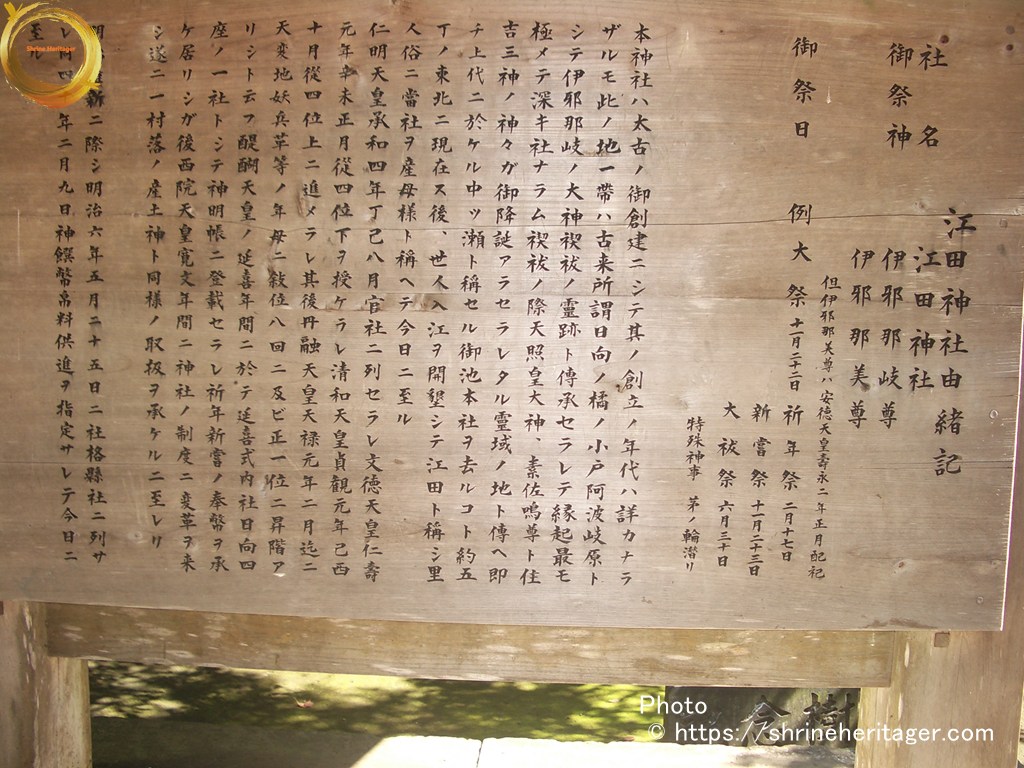 江田神社由緒記
社名 江田神社
御祭神 伊邪那岐尊
伊邪那美尊
但伊邪那美尊ハ安徳天皇壽永二年正月配祀
御祭日 例大祭 十一月二十二日 祈年祭 二月十七日
新嘗祭 十一月二十三日
大祓祭 六月三十日
特殊神事 茅ノ輪潜リ
本神社ハ太古ノ御創建ニシテ其ノ創立ノ年代ハ詳カナラ
ザルモ此ノ地一帶ハ古来所謂日向ノ橘ノ小戸阿波岐原ト
シテ伊邪那岐ノ大神禊祓ノ靈跡ト傳承セラレテ縁起最モ
極メテ深キ社ナラム禊祓ノ際天照皇大神、素佐鳴尊ト住
吉三神ノ神々ガ御降誕アラセラレタル靈域ノ地ト傳ヘ即
チ上代ニ於ケル中ツ瀬ト稱セル御池本社ヲ去ルコト約五
丁ノ東北ニ現在ス後、世人入江ヲ開墾シテ江田ト稱シ里
人俗ニ當社ヲ産母様ト稱ヘテ今日ニ至ル
仁明天皇承和四年丁己八月官社ニ列セラレ文徳天皇仁壽
元年辛未正月從四位下ヲ授ケラレ清和天皇貞觀元年己酉
十月從四位上ニ進メラレ其後丹融天皇天禄元年二月迄ニ
天変地妖兵革等ノ年毎ニ敍位八回ニ及ビ正一位ニ昇階ア
リシト云フ醍醐天皇ノ延喜年間ニ於テ延喜式内社日向四
座ノ一社トシテ神明帳ニ登載セラレ祈年新嘗ノ奉幣ヲ承
ケ居リシガ後西院天皇寛文年間ニ神社ノ制度ニ変革ヲ来
シ遂ニ一村落ノ産土神ト同様ノ取扱ヲ承ケルニ至レリ
新ニ際シ明治六年五月二十五日ニ社格縣社ニ列サ
レ 四 年二月九日神饌幣帛料供進ヲ指定サレテ今日ニ
至ル
樹
念
Shrine Heritager
Photo
© https://shrineheritager.com